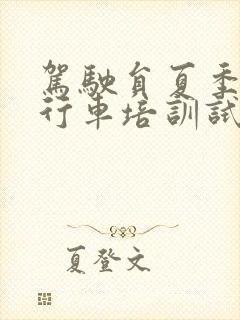 駕駛員夏季
行車培訓試
夏登文